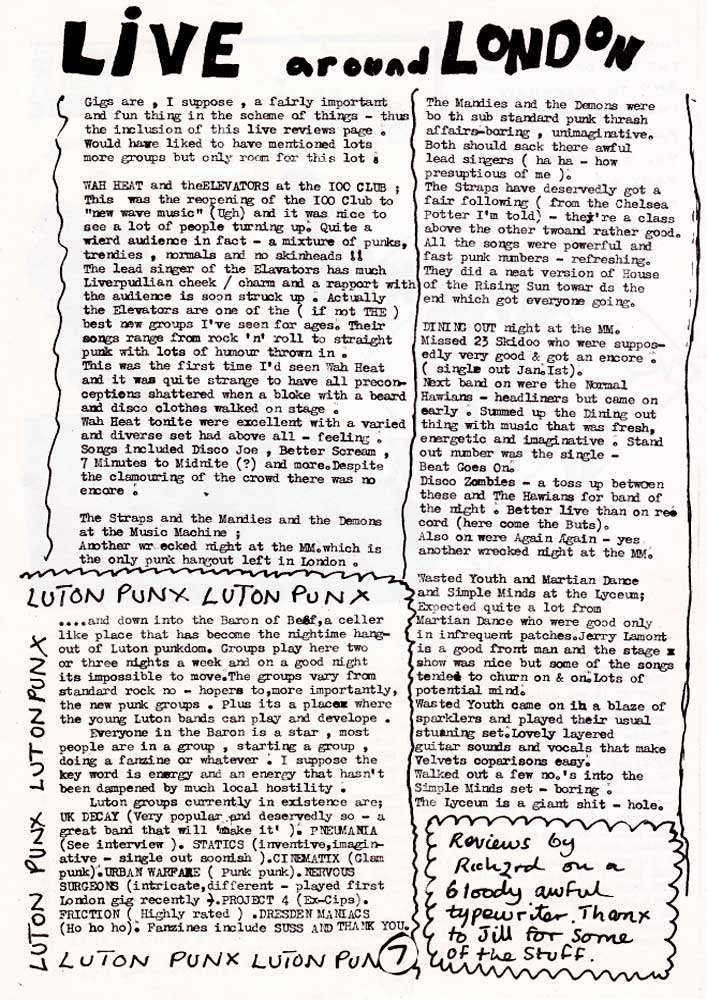 LIVE around LONDON
Gigs are , I suppose , a fairly important
and fun thing in the scheme of things - thus
the inclusion of this live reviews page .
Would have liked to have mentioned lots
more groups but only room for this lot !
WAH HEAT and theELEVATORS at the IOO CLUB ;
This was the reopening of the IOO Club to
"new wave music" (Ugh) and it was nice to
see a lot of people turning up. Quite a
wierd audience in fact - a mixture of punks,
trendies , normals and no skinheads !!
The lead singer of the Elavators has much
Liverpudlian cheek / charm and a rapport with
the audience is soon struck up . Actually
the Elevators are one of the ( if not THE )
best new groups I've seen for ages. Their
songs range from rock 'n' roll to straight
punk with lots of humour thrown in .
This was the first time I'd seen Wah Heat
and it was quite strange to have all precon-
ceptions shattered when a bloke with a beard
and disco clothes walked on stage .
Wah Heat tonite were excellent with a varied
and diverse set had above all - feeling .
Songs included Disco Joe , Better Scream ,
7 Minutes to Midnite (?) and more.Despite
the clamouring of the crowd there was no
encore .
The Straps and the Mandies and the Demons
at the Music Machine ;
Another wr ecked night at the MM.which is
the only punk hangout left in London .
LUTON PUNX LUTON PUNX
LUTON PUNX LUTON PUNX
....and down into the Baron of Beef,a celler
like place that has become the nightime hang-
out of Luton punkdom. Groups play here two
or three nights a week and on a good night
its impossible to move.The groups vary from
standard rock no - hopers to,more importantly,
the new punk groups . Plus its a place where
the young Luton bands can play and develope .
Everyone in the Baron is a star , most
people are in a group , starting a group ,
doing a fanzine or whatever . I suppose the
key word is energy and an energy that hasn't
been dampened by much local hostility .
Luton groups currently in existence are;
UK DECAY (Very popular and deservedly so - a
great band that will 'make it' ). PNEUMANIA
(See interview ). STATICS (inventive,imagin-
ative - single out soonish ).CINEMATIX (Glam
punk).URBAN WARFARE ( Punk punk).NERVOUS
SURGEONS (intricate,different - played first
London gig recently ).PROJECT 4 (Ex-Cips).
FRICTION ( Highly rated ) .DRESDEN MANIACS
(Ho ho ho). Fanzines include SUSS AND THANK YOU.
LUTON PUNX LUTON PUN
7
The Mandies and the Demons were
bo th sub standard punk thrash
affairs-boring , unimaginative.
Both should sack there awful
lead singers ( ha ha - how
presuptious of me ).
The Straps have deservedly got a
fair following ( from the Chelsea
Potter I'm told) - they're a class
above the other twoand rather good.
All the songs were powerful and
fast punk numbers - refreshing.
They did a neat version of House
of the Rising Sun towar ds the
end which got everyone going.
DINING OUT night at the MM.
Missed 23 Skidoo who were suppos-
edly very good & got an encore .
( single out Jan.Ist).
Next band on were the Normal
Hawians - headliners but came on
early . Summed up the Dining out
thing with music that was fresh,
energetic and imaginative . Stand
out number was the single -
Beat Goes On.
Disco Zombies - a toss up between
these and The Hawians for band of
the night . Better live than on re
cord (here come the Buts).
Also on were Again Again - yes
another wrecked night at the MM.
Wasted Youth and Martian Dance
and Simple Minds at the Lyceum;
Expected quite a lot from
Martian Dance who were good only
in infrequent patches.Jerry Lamont
is a good front man and the stage
show was nice but some of the songs
tended to churn on & on.Lots of
potential mind.
Wasted Youth came on in a blaze of
sparklers and played their usual
stunning set.Lovely layered
guitar sounds and vocals that make
Velvets coparisons easy.
Walked out a few no.'s into the
Simple Minds set - boring .
The Lyceum is a giant shit - hole.
Reviews by
Rich2rd on a
bloody awful
typewriter. Thanx
to Jill for some
of the stuff.